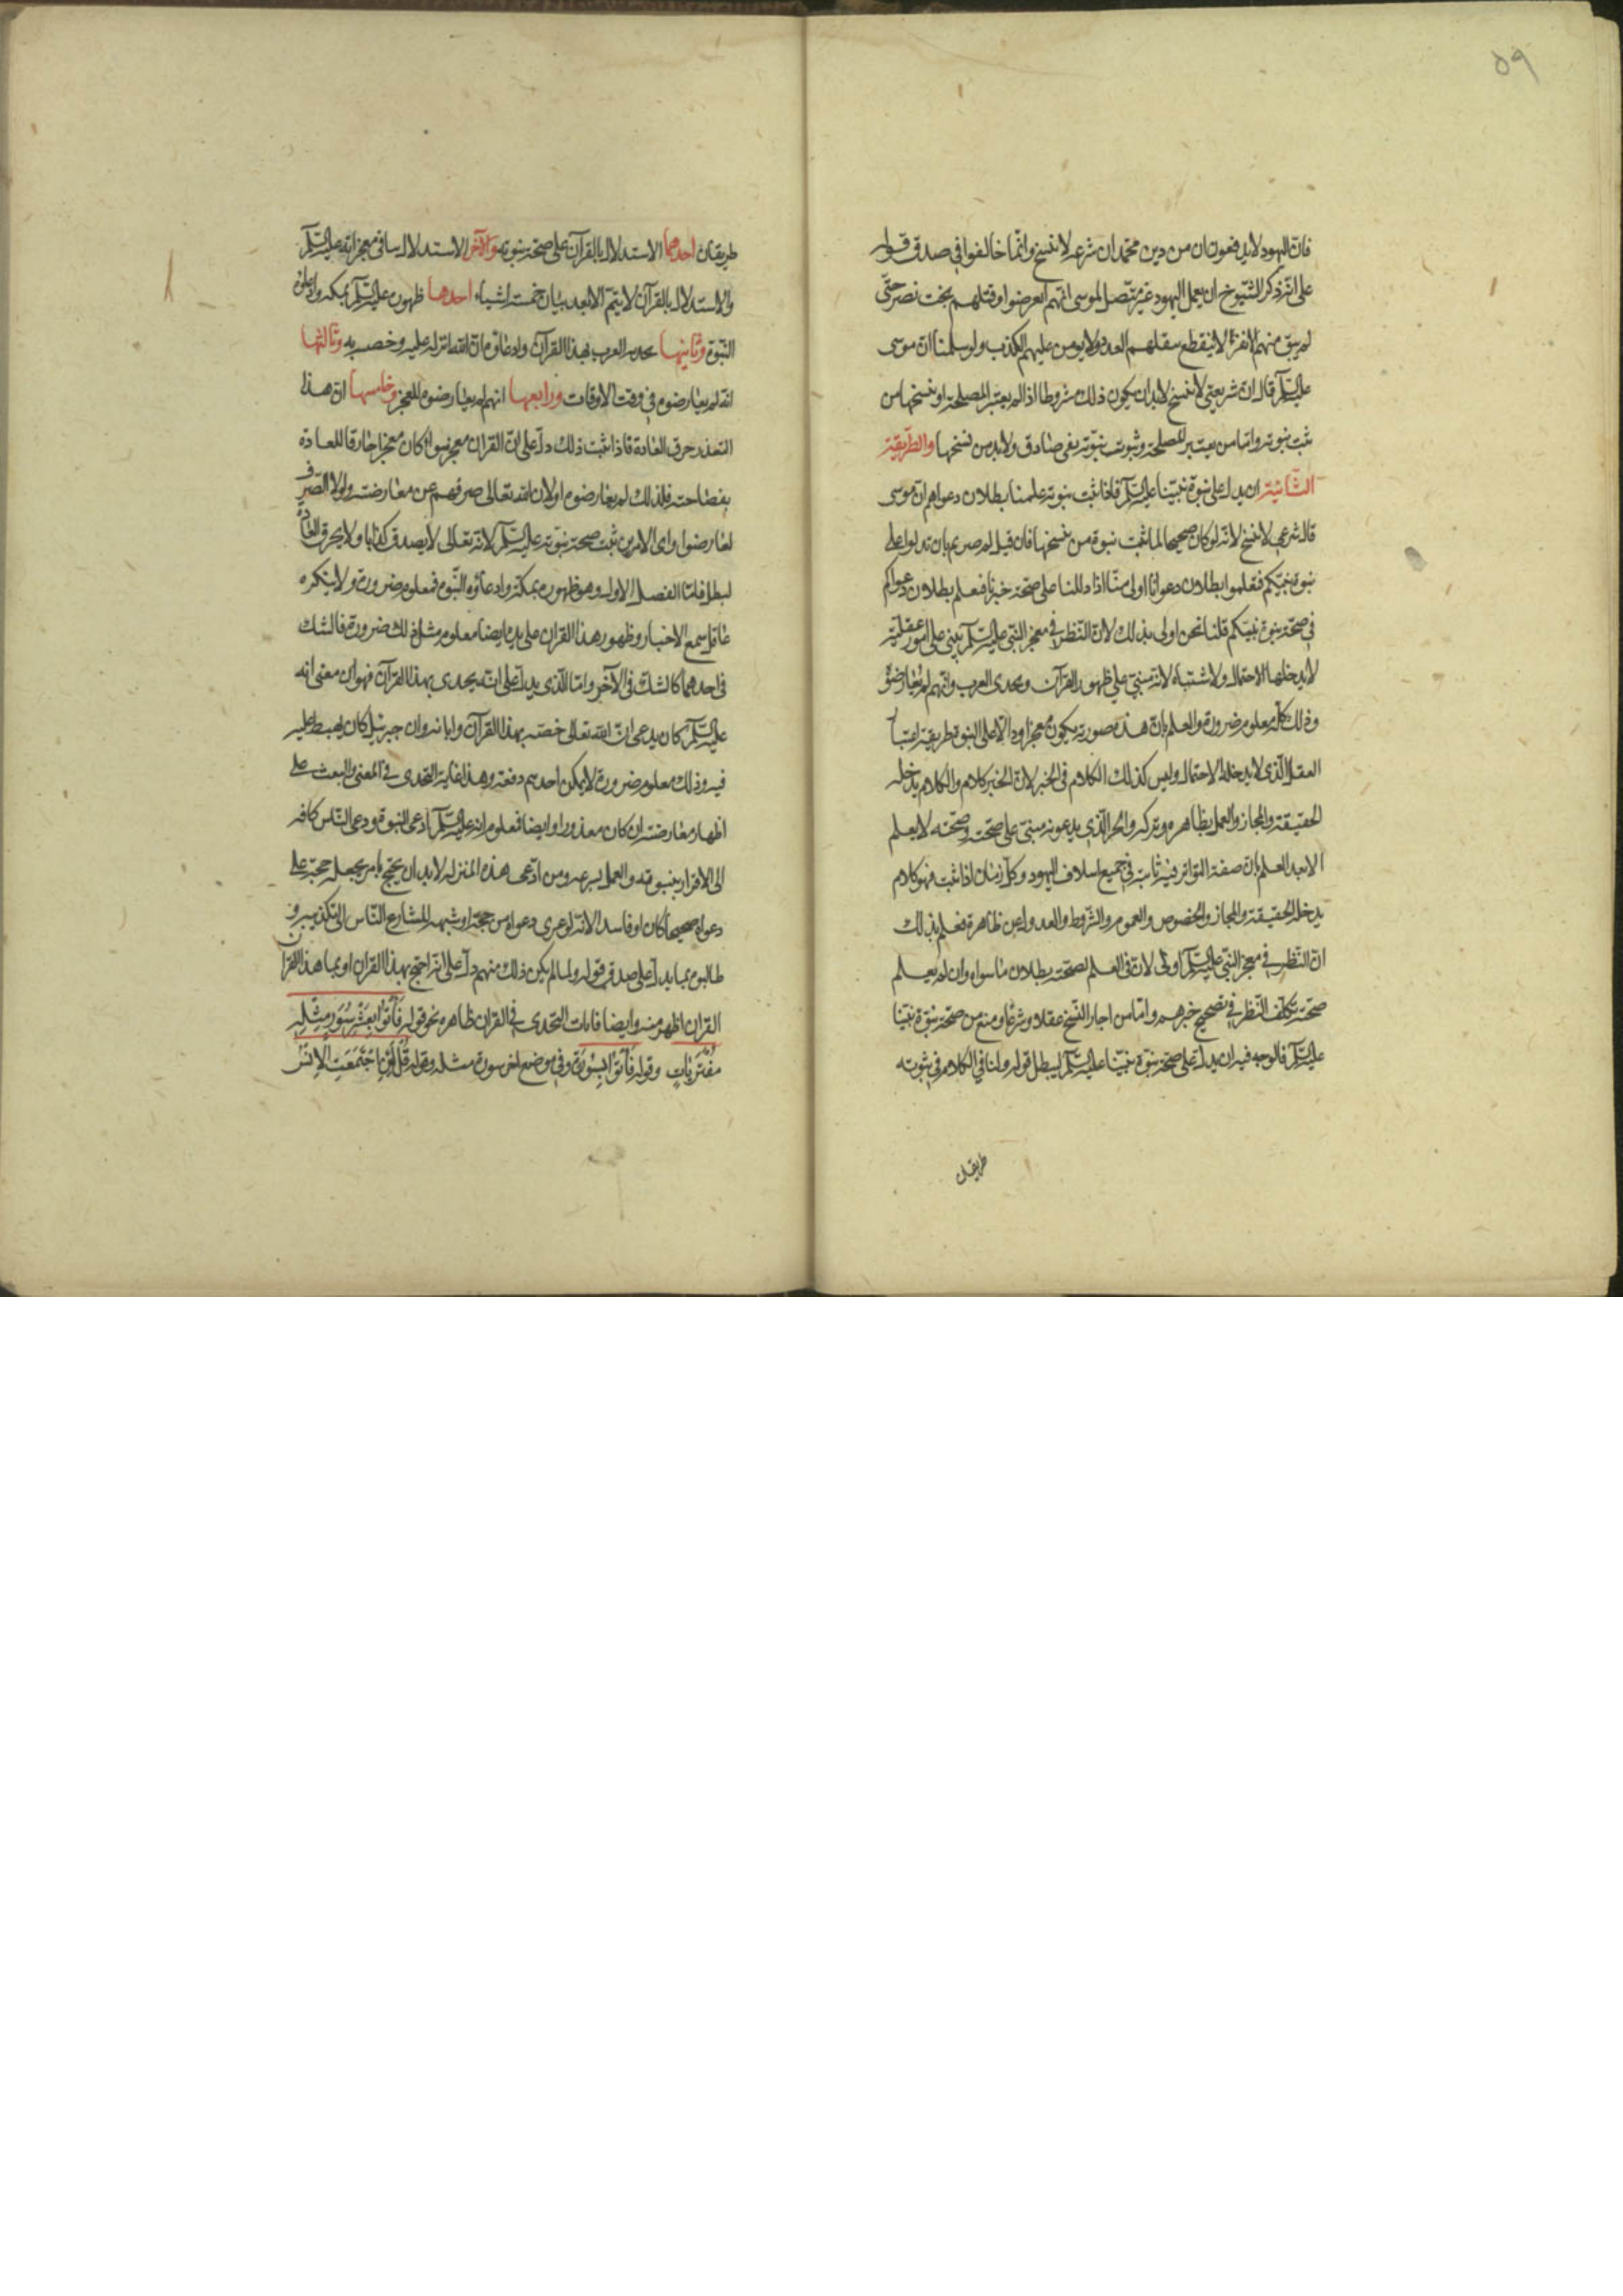 ٥٩
فان اليهود لا يدفعون ان من دين محمد ان شرعه لا ينسخ وانما خالفوا في صدق قوله
على انه ذكر الشيوخ ان نقل اليهود غير متصل لموسى انهم انقرضوا وقتلهم بخت نصر حتى
لم يبق منهم الا نفر لا ينقطع بنقلهم العدد ولا يومن عليهم الكذب ولو سلمنا ان موسى
عليه السلام قال ان شريعتي لا تنسخ لا بد ان يكون ذلك مشروطا اذا لم يعتبر المصلحة او نسخها من
ثبت نبوته واما من يعتبر المصلحة وثبوت نبوته نفى صادق ولا بد من نسخها والطريقة
الثانية ان يدل على نبوة نبينا عليه السلام فاذا ثبت نبوته علمنا بطلان دعواهم ان موسى
قال شرعي لا ينسخ لانه لو كان صحيحا لما ثبت نبوة من نسخها فان قيل لم صرتم بان تدلوا على
نبوة نبيكم فتعلموا بطلان دعوانا اولى منا اذا دللنا على صحة خبرنا فنعلم بطلان دعواكم
في صحة نبوة نبيكم قلنا نحن اولى بذلك لان النظر في معجز النبي عليه السلام يبنى على امور عقلية
لا يدخلها الاحتمال ولا اشتباه لانه مبني على ظهور القرآن وتحدى العرب وانهم لم يعارضوه
وذلك كله معلوم ضرورة والعلم بان هذه صورته يكون معجزا ودالا على النبوة طريقة اعتبا
العقل الذي لا يدخله الاحتمال وليس كذلك الكلام في الخبر لان الخبر كلام والكلام يدخله
الحقيقة والمجاز والعمل بظاهره وتركه والخبر الذي يدعونه مبني على صحته وصحته لا يعلم
الا بعد العلم بان صفة التواتر فيه ثابتة في جميع اسلاف اليهود وكل زمان اذا ثبت فهو كلام
يدخله الحقيقة والمجاز والخصوص والعموم والشروط والعدول عن ظاهره فعلم بذلك
ان النظر في معجز النبي عليه السلام اولى لان في العلم بصحته بطلان ما سواه وان لم يعلم
صحته تكلف النظر في تصحيح خبرهم واما من اجاز النسخ عقلا وشرعا ومنع من صحة نبوة نبينا
عليه السلام فالوجه فيه ان يدل على صحة نبوة نبينا عليه السلام ليبطل قوله ولنا في الكلام في ثبوته
طريقان
طريقان احدهما الاستدلال بالقرآن على صحة نبوته والآخر الاستدلال بباقي معجزاته عليه السلام
والاستدلال بالقرآن لا يتم الا بعد بيان خمسة اشياء احدها ظهوره عليه السلام بمكة وادعائه
النبوة وثانيها تحديه العرب بهذا القرآن وادعاؤه ان الله انزله عليه وخصه به وثالثها
انه لم يعارضوه في وقت الاوقات ورابعها انهم لم يعارضوه للعجز وخامسها ان هذا
التعذر خرق العادة فاذا ثبت ذلك دل على ان القرآن معجز سواء كان معجزا خارقا للعادة
بفصاحته فلذلك لم يعارضوه او لان الله تعالى صرفهم عن معارضته ولولا الصرف
لعارضوا واى الامرين ثبت صحة نبوته عليه السلام لانه تعالى لا يصدق كذابا ولا يخرق العادة
لمبطل فاما الفصل الاول وهو ظهوره بمكة وادعاؤه النبوة فمعلوم ضرورة ولا ينكره
عاقل سمع الاخبار وظهور هذا القرآن على يده ايضا معلوم مثل ذلك ضرورة فالشك
في احدهما كالشك في الآخر واما الذي يدل على انه يحدى بهذا القرآن فهو ان معنى انه
عليه السلام كان يدعى ان الله تعالى خصه بهذا القرآن وابانه وان جبرئيل كان يهبط عليه
فيه وذلك معلوم ضرورة لا يمكن احد دفعه وهذا غاية التحدي في المعنى والبعث على
اظهار معارضته ان كان معذورا وايضا فمعلوم انه عليه السلام ادعى النبوة ودعى الناس كافة
الى الاقرار بنبوته والعمل بشرعه ومن ادعى هذه المنزلة لا بد ان يحتج بامر يجعله حجة على
دعواه صحيحا كان او فاسدا لانه لو عرى دعواه من حجة او شبهة لسارع الناس الى تكذيبه و
طالبوه بما يدل على صدق قوله ولما لم يكن ذلك منهم دل على انه احتج بهذا القرآن او بما هذا القرآن
القرآن اظهر منه وايضا فايات التحدي في القرآن ظاهرة نحو قوله فَأْتُوا بِعَشْرِ سُوَرٍ مِثْلِهِ
مُفْتَرَيَاتٍ وقوله فَأْتُوا بِسُورَةٍ وفي موضع اخر سورة مثله وقوله قُلْ لَئِنِ اجْتَمَعَتِ الْإِنْسُ